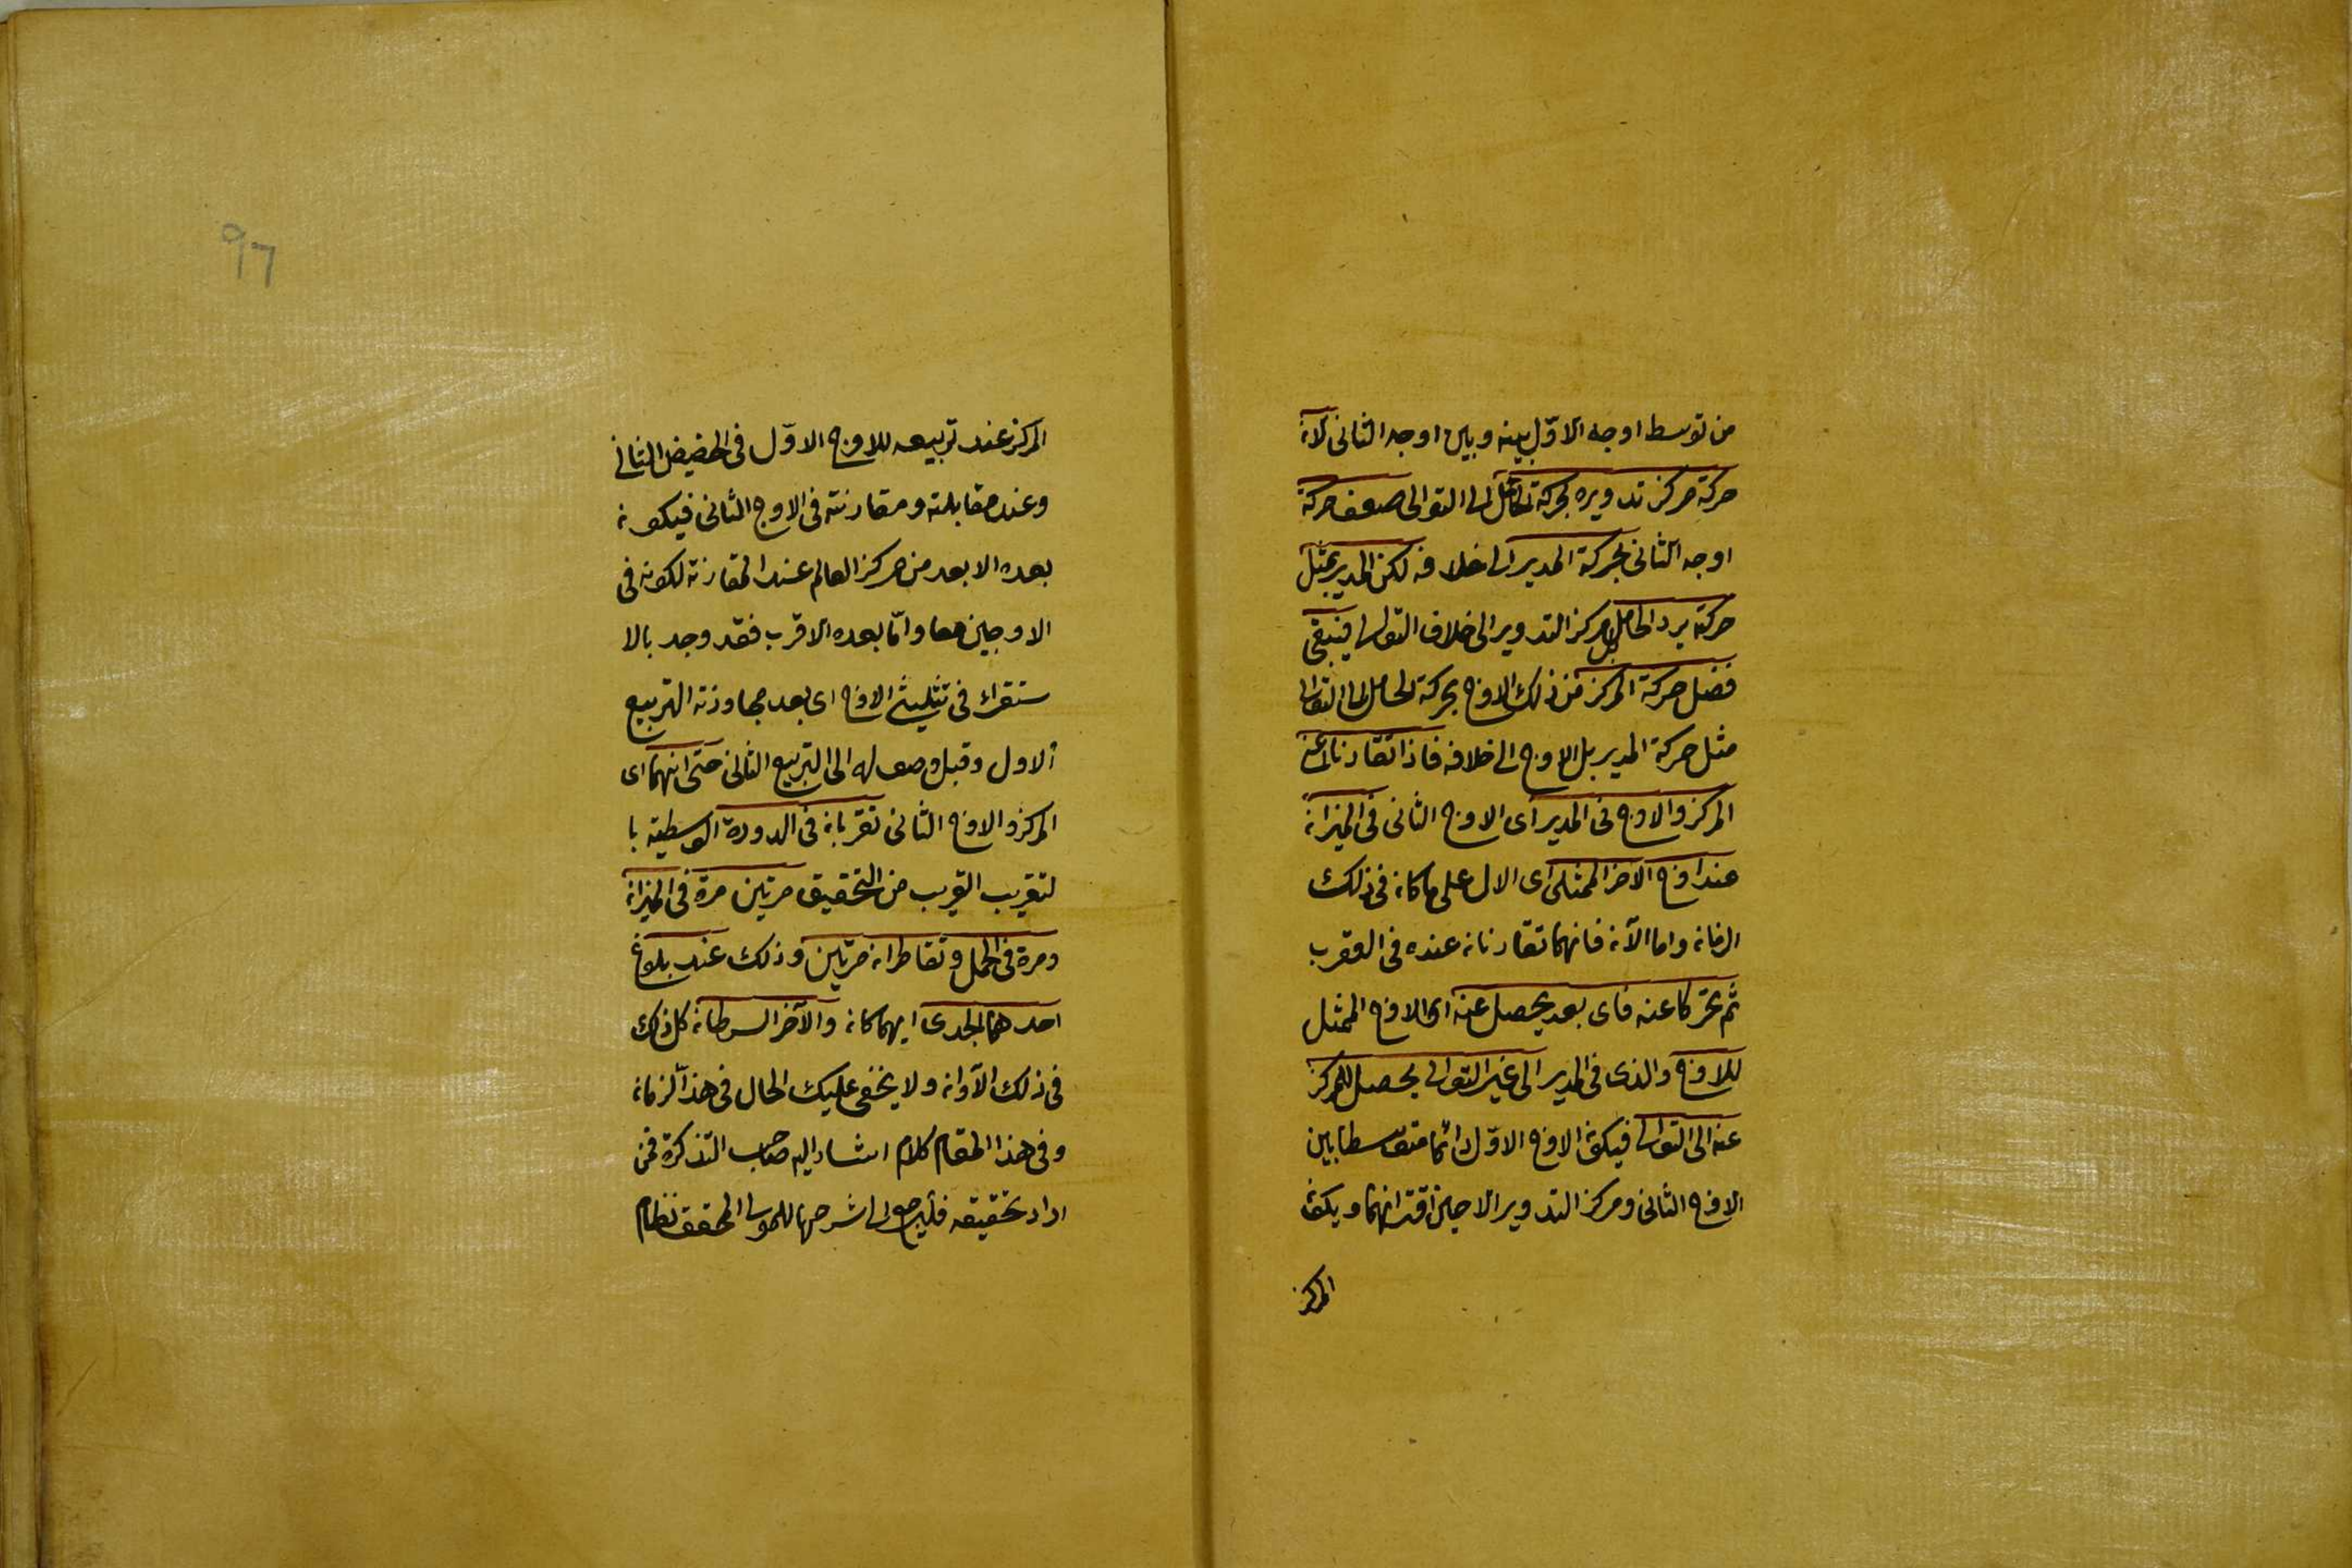 من توسط اوجه الاوّل بينه وبين اوجه الثانى لانّ
حركة مركز تدويره بحركة الحامل الى التوالى ضعف حركة
اوجه الثانى بحركة المدير الى خلافه لكن المدير بمثل
حركته يرد الحامل مركز التدوير الى خلاف التوالى فيبقى
فضل حركة المركز من ذلك الاوج بحركة الحامل الى التوالى
مثل حركة المدير بل الاوج الى خلافه فاذا تقارنا اعنى
المركز والاوج فى المدير اى الاوج الثانى فى الميزان
عند اوج الآخر الممثلى اى الاول على ما كان فى ذلك
الزمان واما الآن فانهما تقارنان عنده فى العقرب
ثم تحركا عنه فاى بعد يحصل عنه اى الاوج الممثل
للاوج والذى فى المدير الى غير التوالى يحصل للمركز
عنه الى التوالى فيكون الاوج الاوّل دائما متوسطا بين
الاوج الثانى ومركز التدوير الا حين اقترانهما ويكون
المركز
٩٦
المركز عند تربيعه للاوج الاوّل فى الحضيض الثانى
وعند مقابلته ومقارنته فى الاوج الثانى فيكون
بعده الابعد من مركز العالم عند المقارنة لكونه فى
الاوجين معا وامّا بعده الاقرب فقد وجد بالا
ستقراء فى تثليث الاوج اى بعد مجاوزته التربيع
الاول وقبل وصوله الى التربيع الثانى حتى انهما اى
المركز والاوج الثانى تقربان فى الدورة الوسطية با
لتقريب القريب من التحقيق مرتين مرة فى الميزان
ومرة فى الحمل وتقاطران مرتين وذلك عند بلوغ
احدهما الجدى ايهما كان والآخر السرطان كل ذلك
فى ذلك الآوان ولا يخفى عليك الحال فى هذا الزمان
وفى هذا المقام كلام اشار اليه صاحب التذكرة فمن
اراد تحقيقه فليرجع الى شرحها للمولى المحقق نظام